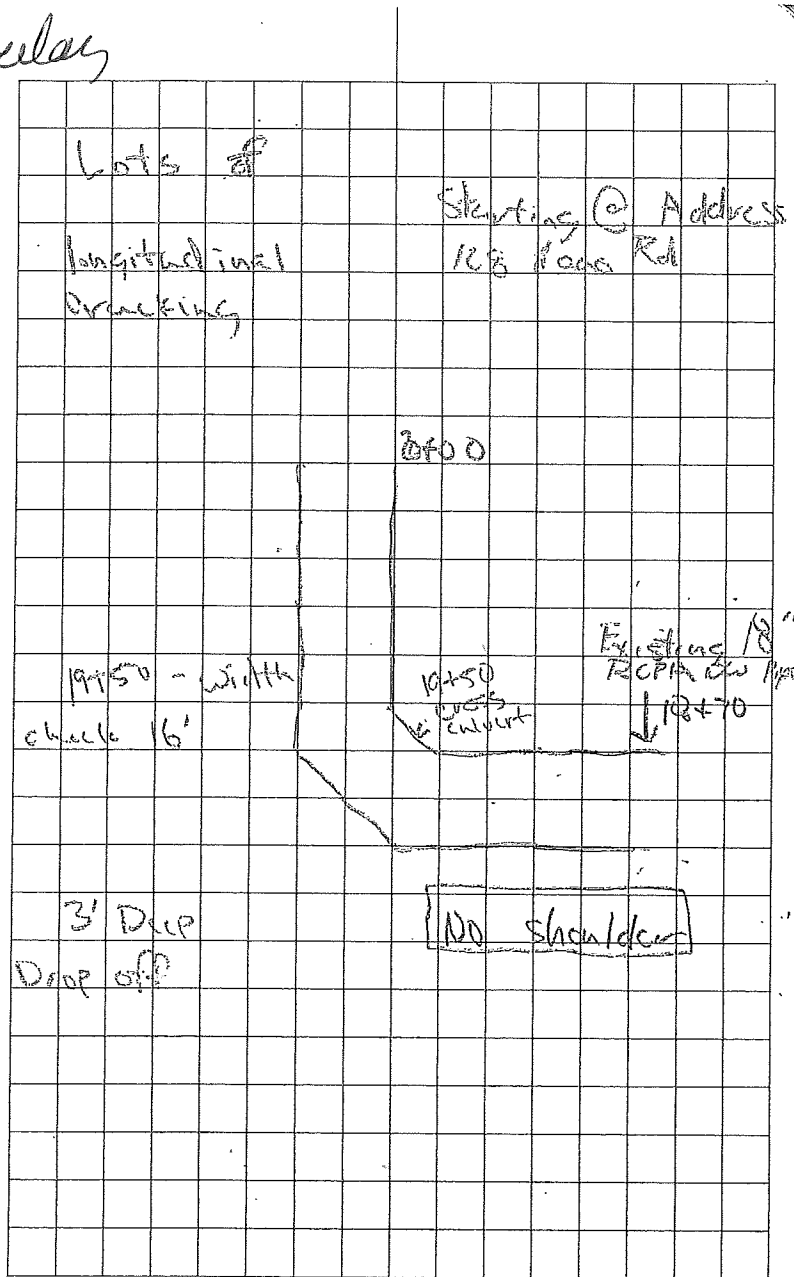 Lots of
longitudinal
Cracking
Starting @ Address
128 Rd
20+00
19+50 - width
check 16'
19+50
culvert
Existing 18"
RCP
18+70
3' Deep
Drop off
No shoulder